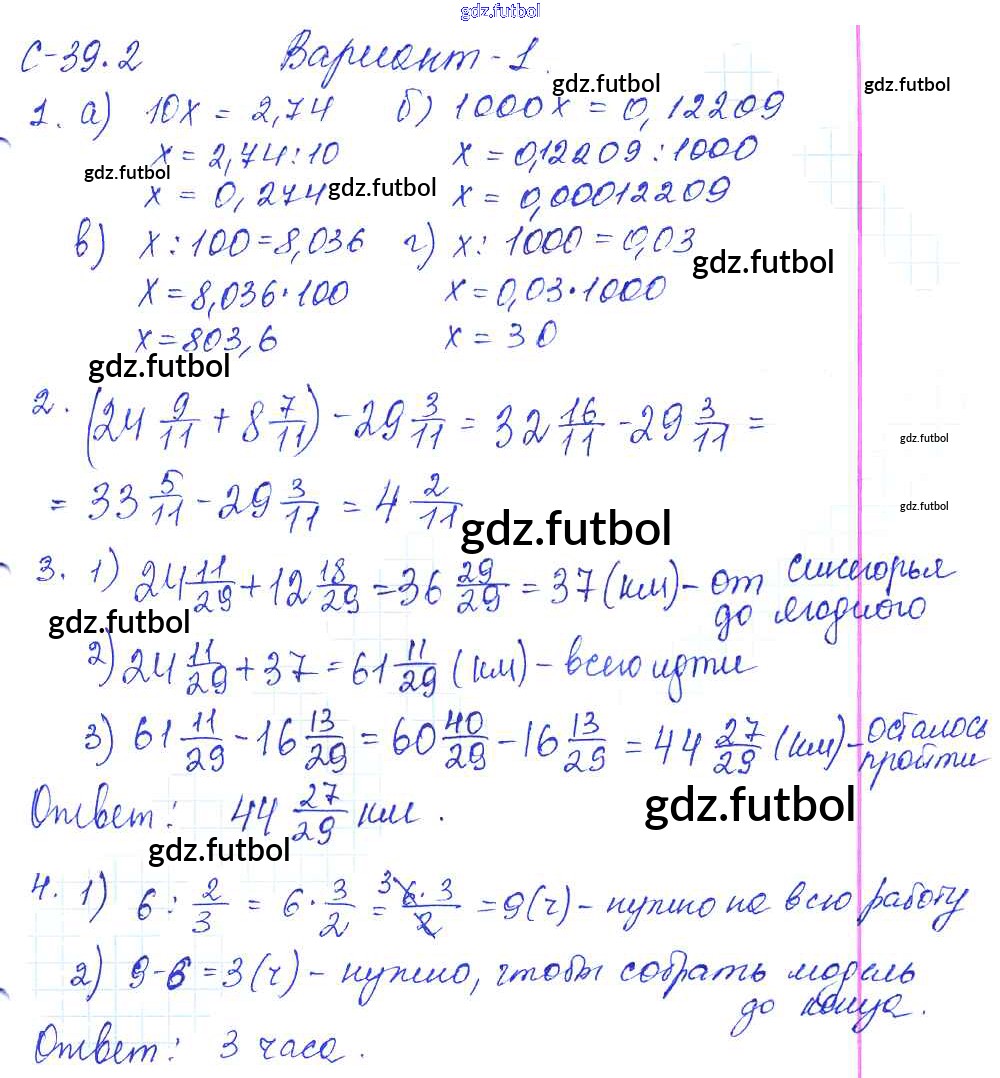 gdz.futbol
С-39.2 Вариант-1.
gdz.futbol gdz.futbol
1. а) 10x = 2,74 б) 1000x = 0,12209
x = 2,74:10 x = 0,12209:1000
gdz.futbol gdz.futbol
x = 0,274 x = 0,00012209
в) x:100=8,036 г) x: 1000=0,03
gdz.futbol
x=8,036·100 x=0,03·1000
x=803,6 x = 30
gdz.futbol
2. (24 9/11 + 8 7/11) - 29 3/11 = 32 16/11 - 29 3/11 =
gdz.futbol
= 33 5/11 - 29 3/11 = 4 2/11
gdz.futbol
gdz.futbol
3. 1) 24 11/29 + 12 18/29 = 36 29/29 = 37 (км) - от Синегорья
до Ягодного
gdz.futbol
2) 24 11/29 + 37 = 61 11/29 (км) - всего идти
3) 61 11/29 - 16 13/29 = 60 40/29 - 16 13/29 = 44 27/29 (км) - осталось
пройти
Ответ: 44 27/29 км.
gdz.futbol
gdz.futbol
4. 1) 6 : 2/3 = 6 · 3/2 = 3 6·3/2 = 9(ч) - нужно на всю работу
2) 9-6 = 3(ч) - нужно, чтобы собрать модель
до конца.
Ответ: 3 часа.